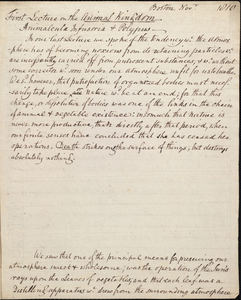 Boston Nov
First Lecture on the Animal Kingdom
Animalcula Infusoria & Polypus
In our last Lecture we spoke of the tendency of the atmos-
phere has of becoming noxious from its retaining particles wh.
are incessantly carried off from putrescent substances, & wh without
some corrector wd soon render our atmosphere unfit for
We saw, however, that putrefaction of organized bodies must neces-
sarily take place, or nature wd be at an end; for that this
change, or dissolution of bodies was one of the links in the chain
of animal & vegetable existence: inasmuch that Nature is
never more productive, than directly after that period, when
our finite senses have concluded that she has ceased her
operations. Death strikes on the surface of things, but destroys
absolutely nothing.
We saw that one of the principal means for preserving our
atmosphere sweet & wholesome, was the operation of the Sun's
rays upon the leaves of vegetables, and that each leaf was a
Distilling apparatus wh drew from the surrounding atmosphere